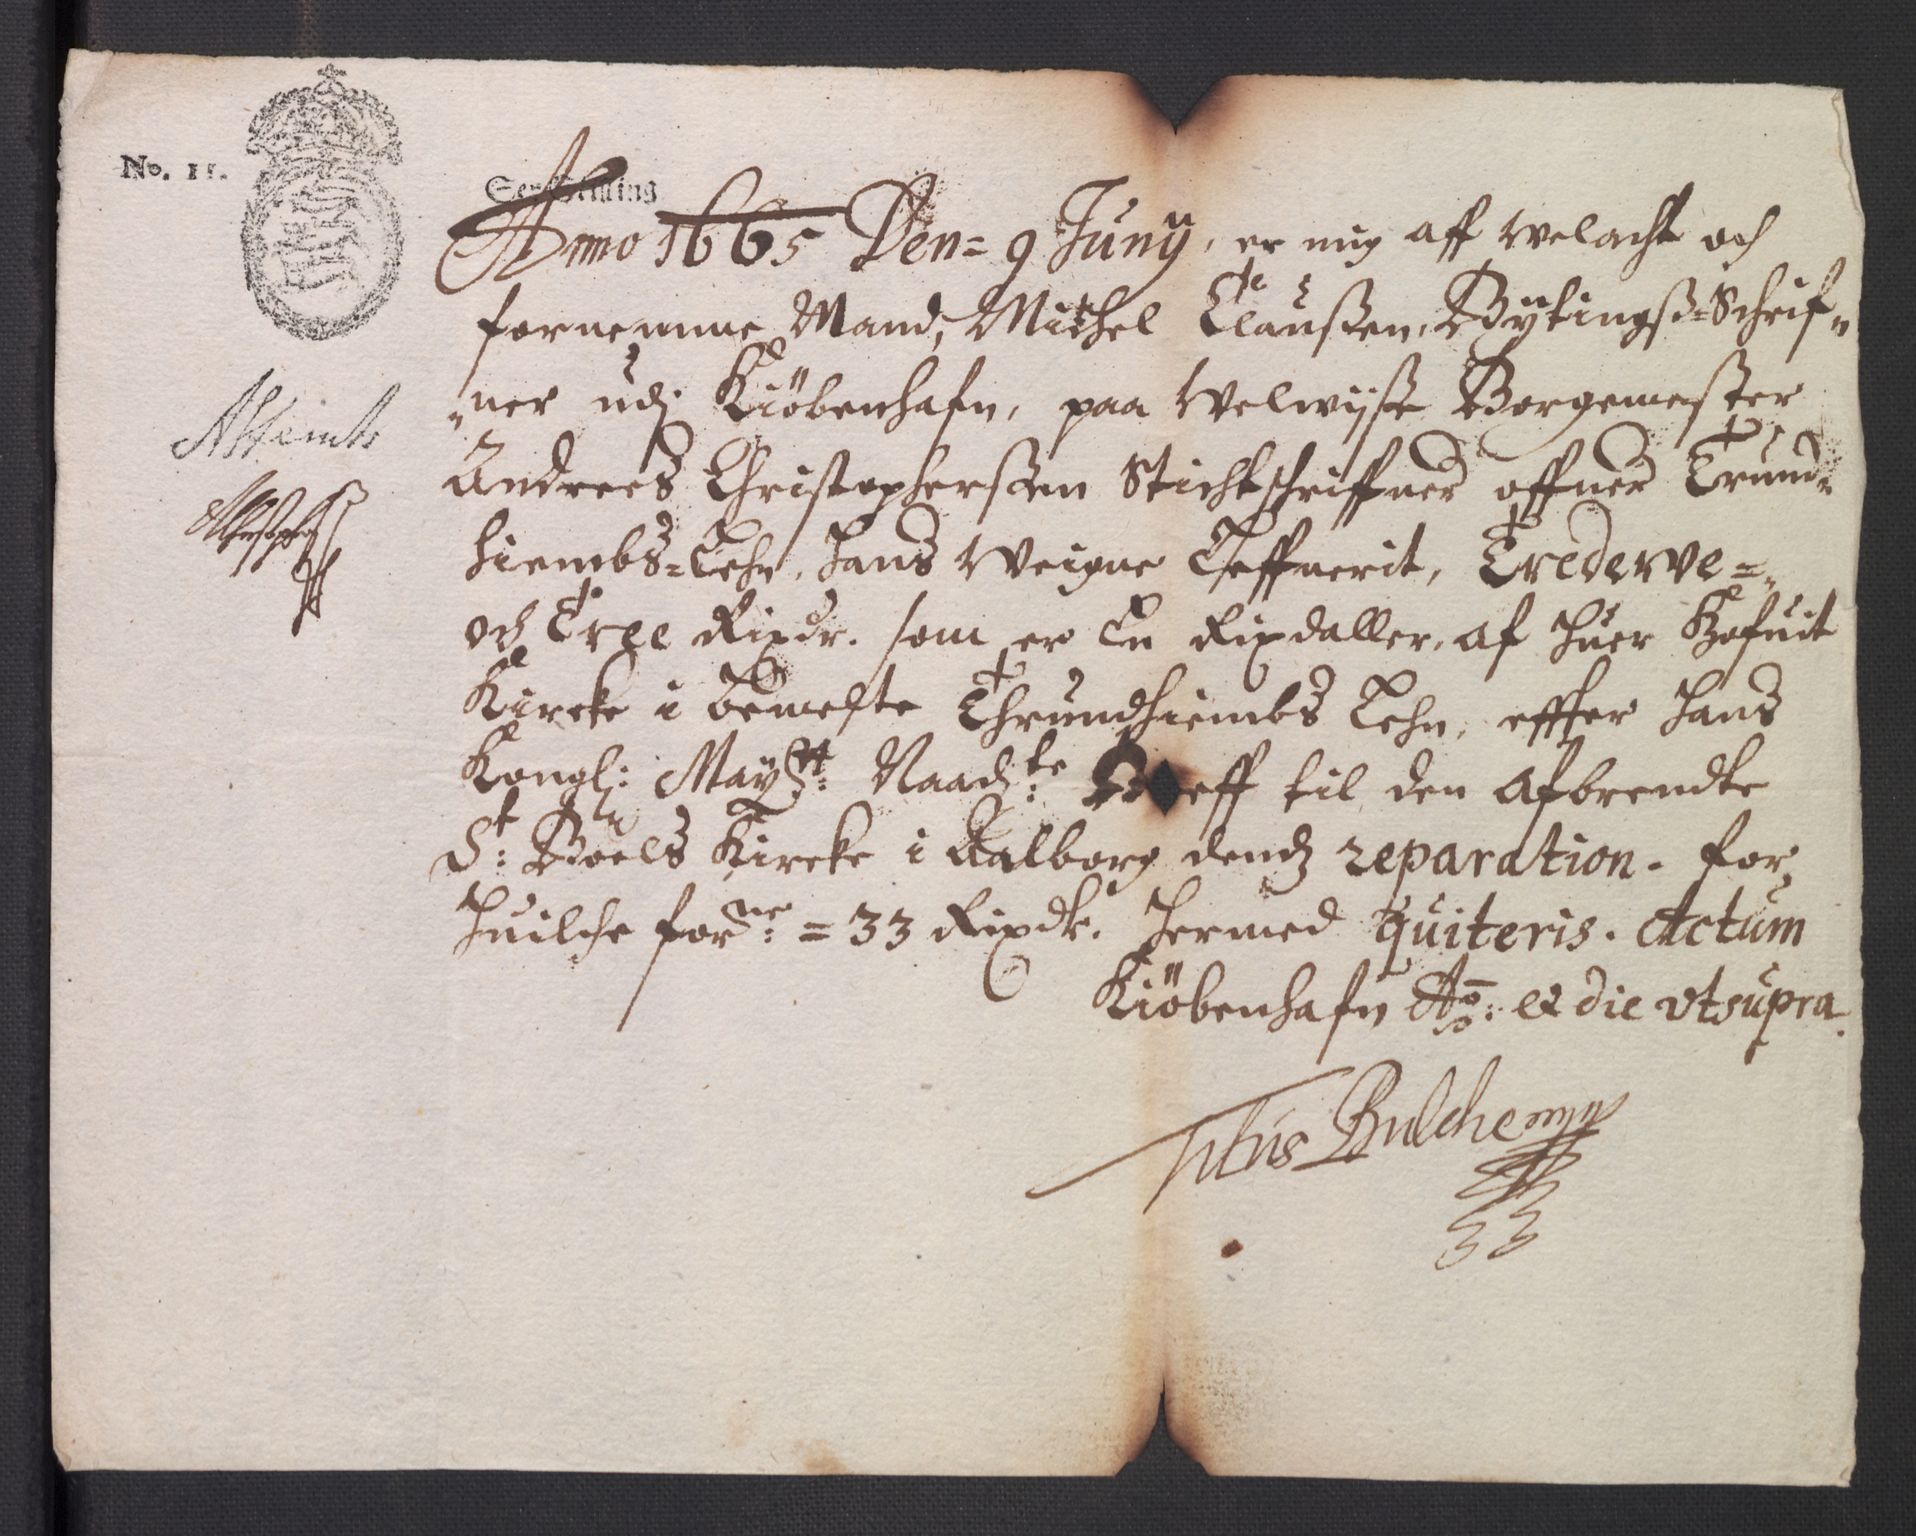 No. 11.
Sex Skilling
Anno 1665 Den= 9 Juny, er mig aff Welacht och
fornemme Mand, Michel Claussen, Bytingss=Schrif=
=ner udj Kiöbenhafn, paa Welwysse Borgemester
Andrees Christopherssen Stichtschriffner offuer Trund=
hiembs=Lehn, hans Weigne Leffuerit, Trederve=
och Tree Rixdr. som er En Rixdaller, af huer Hofuit
Kircke i bemelte Thrundhiembs Lehn, effter hans
Kongl: Maytt: Naadste Breff til den afbrendte
St: Boels Kircke i Aalborg dends reparation. for
huilche forne: = 33 Rixdr. hermed quiteris. Actum
Kiöbenhafn Ao: et die utsupra.
Titus Bulchemy
33